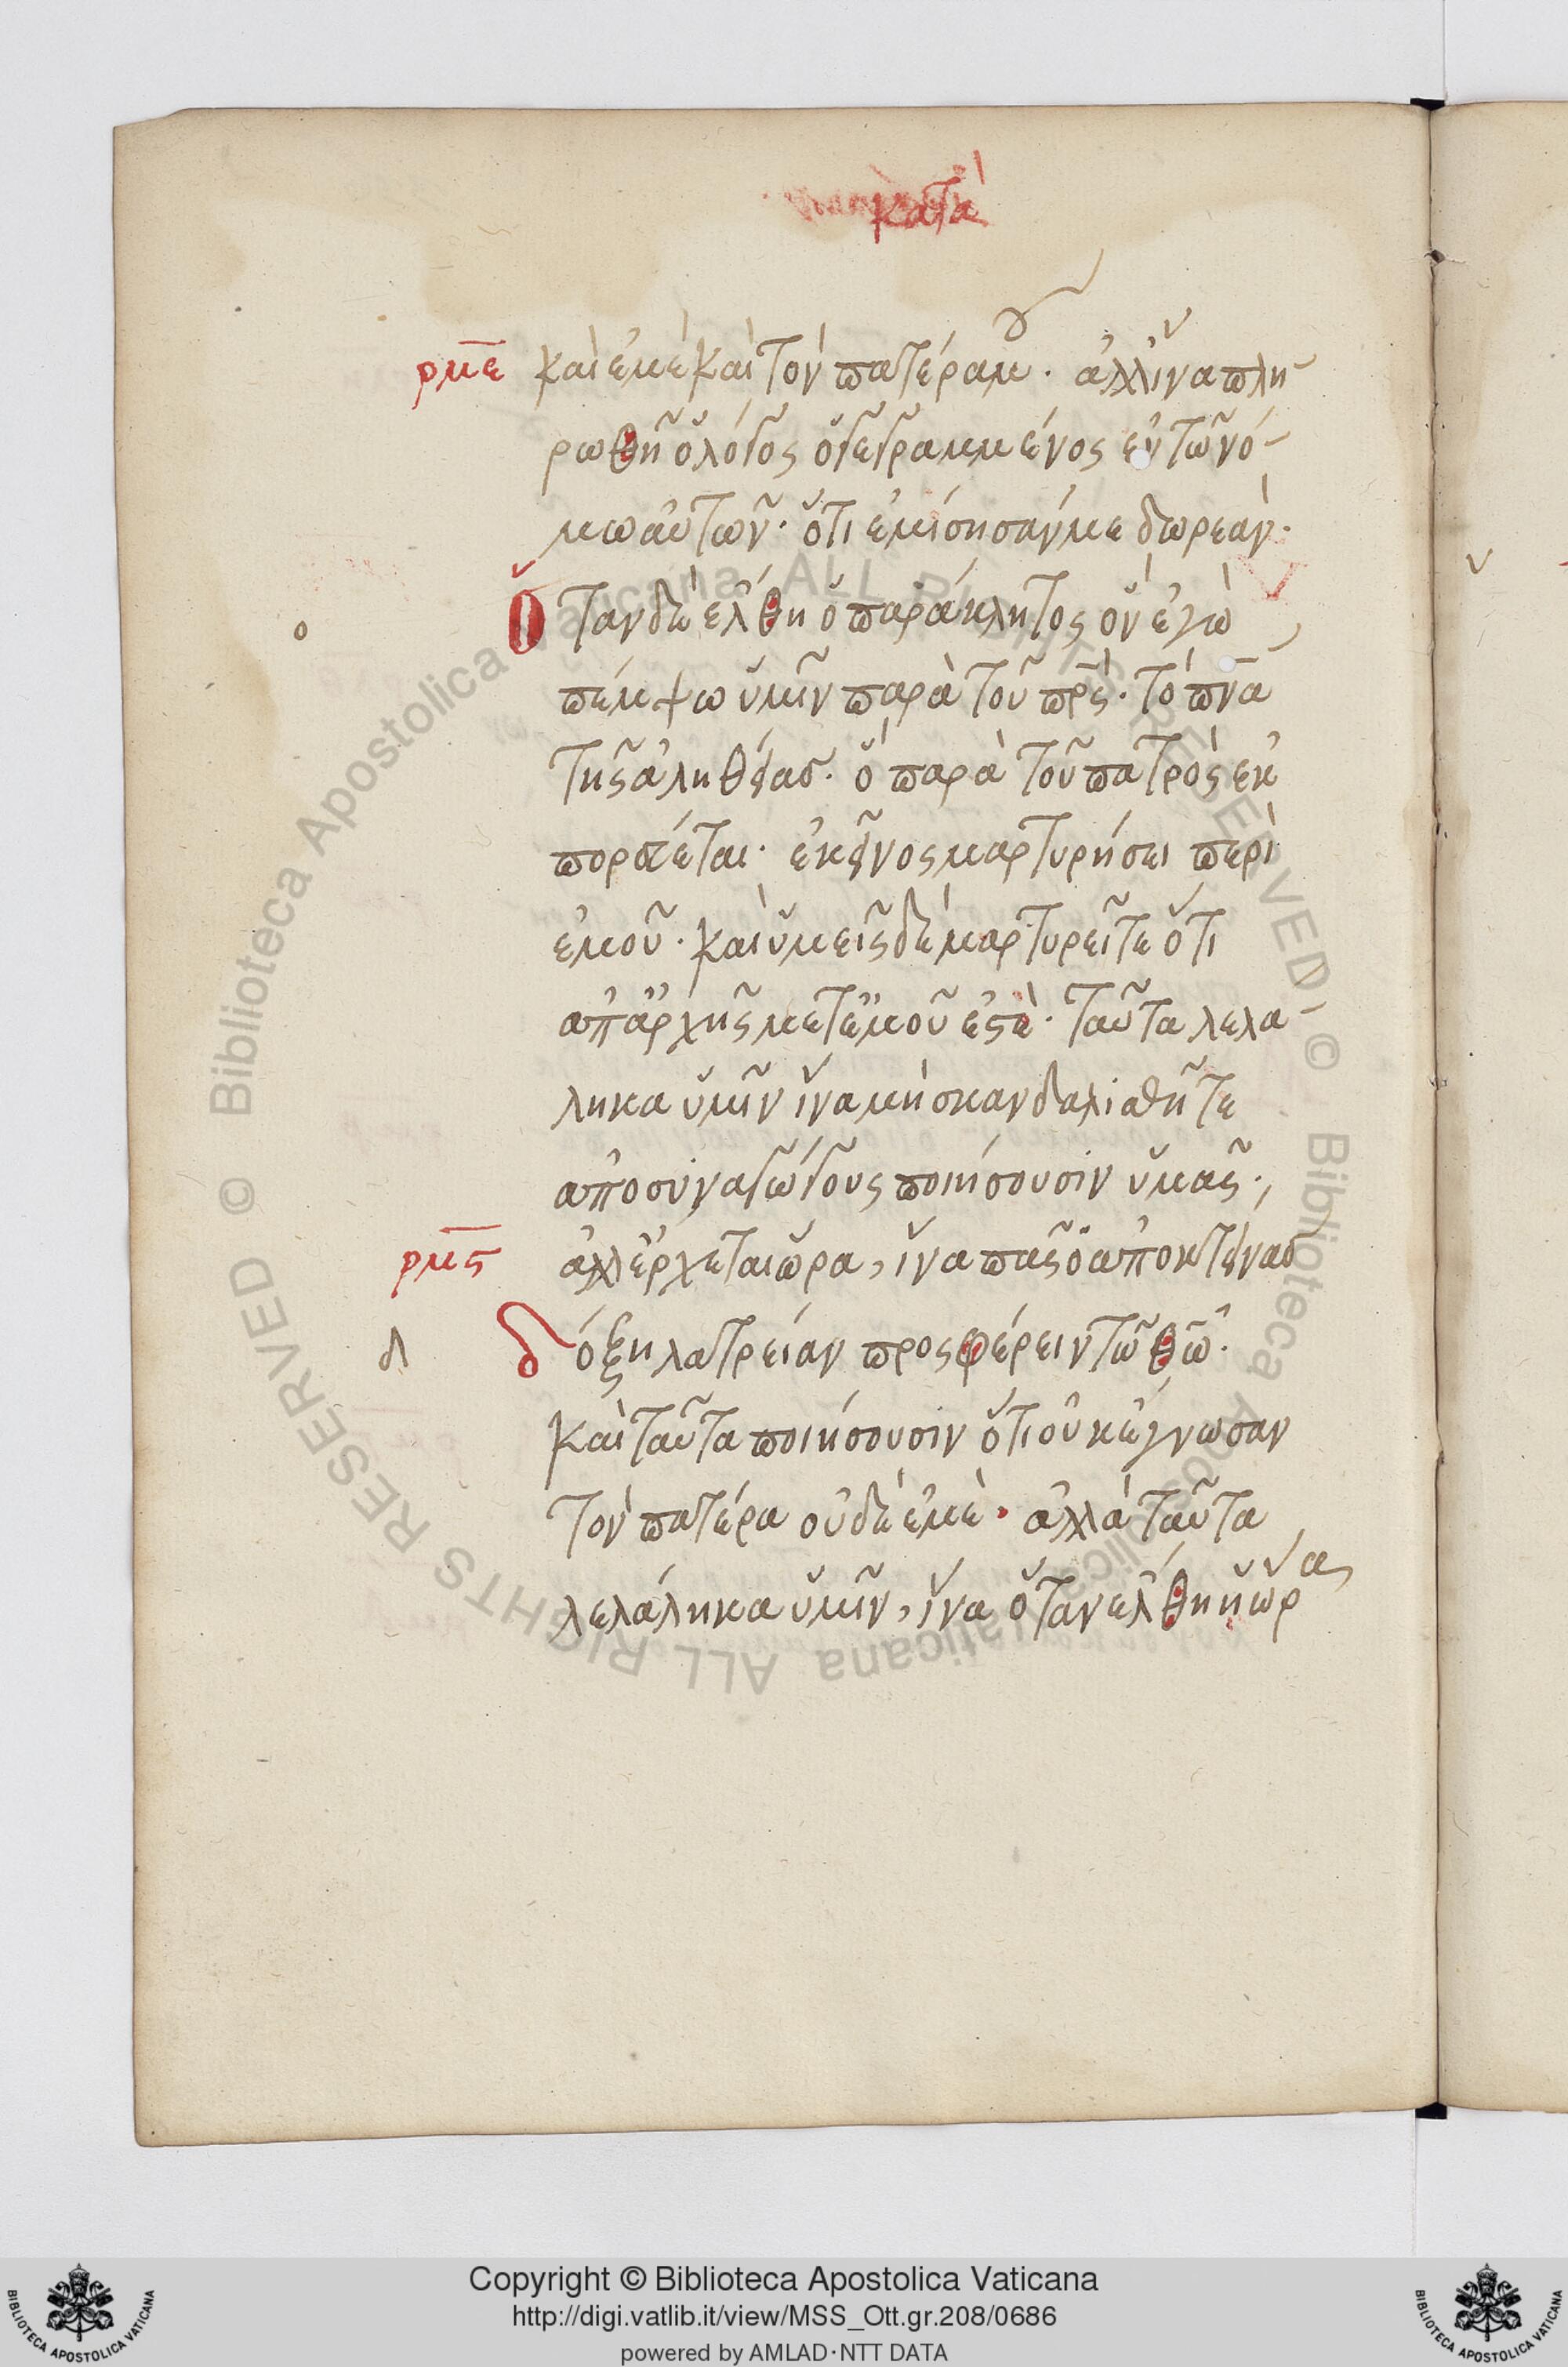 κατὰ
ρμε καὶ ἐμὲ καὶ τὸν πατέρα μου. ἀλλ' ἵνα πλη-
ρωθῆ ὁ λόγος ὁ γεγραμμένος ἐν τῶ νό-
μω αὐτῶν. ὅτι ἐμίσησάν με δωρεάν.
Ὅταν δὲ ἔλθη ὁ παράκλητος ὃν ἐγὼ
ο
πέμψω ὑμῖν παρὰ τοῦ πρς. τὸ πνα
τῆς ἀληθείας. ὃ παρὰ τοῦ πατρὸς ἐκ
πορεύεται. ἐκεῖνος μαρτυρήσει περὶ
ἐμοῦ. καὶ ὑμεῖς δὲ μαρτυρεῖτε ὅτι
ἀπ' ἀρχῆς μετ' ἐμοῦ ἐστὲ. ταῦτα λελα-
ληκα ὑμῖν ἵνα μὴ σκανδαλισθῆτε
ἀποσυναγώγους ποιήσουσιν ὑμᾶς.
ρμϛ ἀλλ' ἔρχεται ὥρα, ἵνα πᾶς ὁ ἀποκτείνας
δ δόξη λατρείαν προσφέρειν τῶ θῶ.
καὶ ταῦτα ποιήσουσιν ὅτι οὐκ ἔγνωσαν
τὸν πατέρα οὐδὲ ἐμὲ. ἀλλὰ ταῦτα
λελάληκα ὑμῖν, ἵνα ὅταν ἔλθη ἡ ὥρα
Copyright © Biblioteca Apostolica Vaticana
http://digi.vatlib.it/view/MSS_Ott.gr.208/0686
powered by AMLAD·NTT DATA
BIBLIOTECA APOSTOLICA VATICANA
BIBLIOTECA APOSTOLICA VATICANA
© Biblioteca Apostolica Vaticana ALL RIGHTS RESERVED © Biblioteca Apostolica Vaticana ALL RIGHTS RESERVED